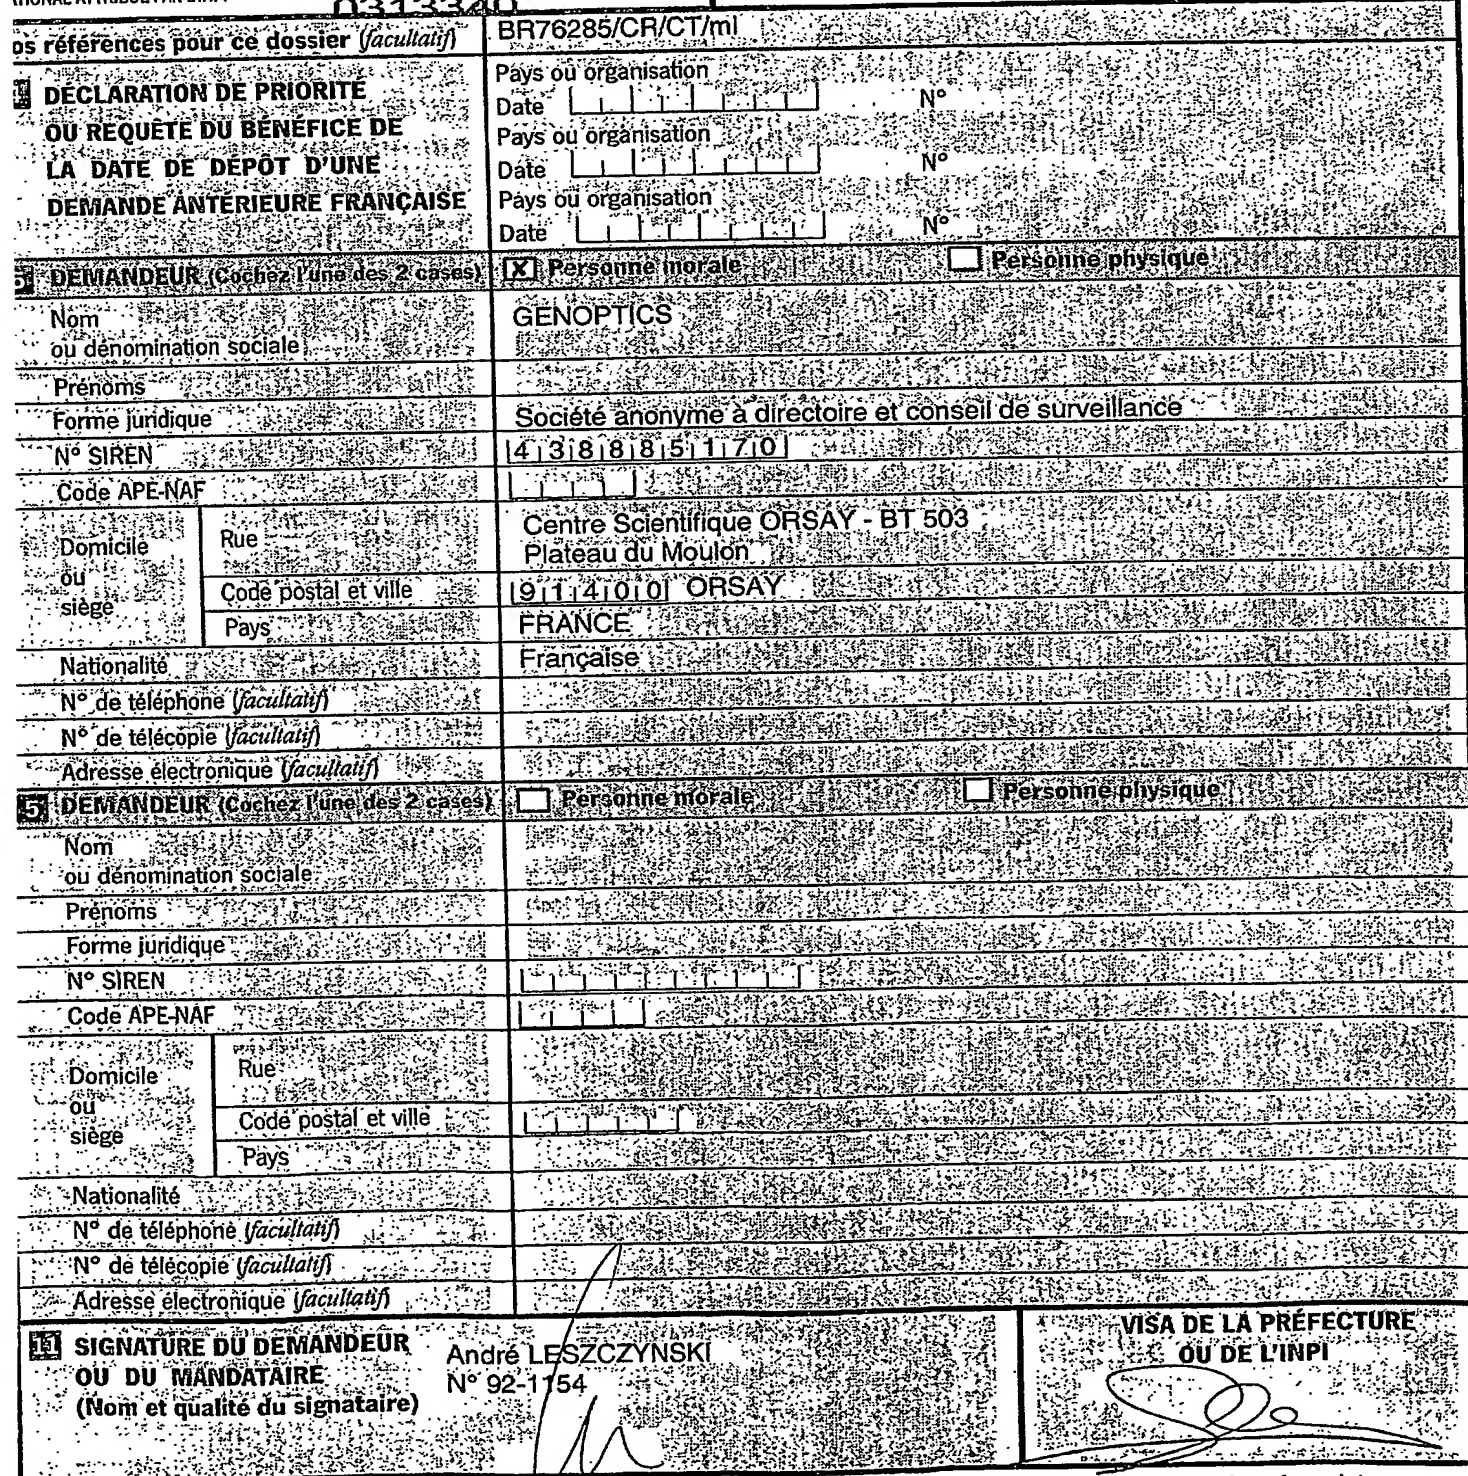 0313340
os références pour ce dossier (facultatif) BR76285/CR/CT/ml
DÉCLARATION DE PRIORITÉ
OU REQUÊTE DU BÉNÉFICE DE
LA DATE DE DÉPÔT D'UNE
DEMANDE ANTÉRIEURE FRANÇAISE
Pays ou organisation
Date N°
Pays ou organisation
Date N°
Pays ou organisation
Date N°
5 DEMANDEUR (Cochez l'une des 2 cases) X Personne morale Personne physique
Nom
ou dénomination sociale
GENOPTICS
Prénoms
Forme juridique Société anonyme à directoire et conseil de surveillance
N° SIREN 438885170
Code APE-NAF
Domicile
ou
siège
Rue Centre Scientifique ORSAY - BT 503
Plateau du Moulon
Code postal et ville 91400 ORSAY
Pays FRANCE
Nationalité Française
N° de téléphone (facultatif)
N° de télécopie (facultatif)
Adresse électronique (facultatif)
5 DEMANDEUR (Cochez l'une des 2 cases) Personne morale Personne physique
Nom
ou dénomination sociale
Prénoms
Forme juridique
N° SIREN
Code APE-NAF
Domicile
ou
siège
Rue
Code postal et ville
Pays
Nationalité
N° de téléphone (facultatif)
N° de télécopie (facultatif)
Adresse électronique (facultatif)
11 SIGNATURE DU DEMANDEUR
OU DU MANDATAIRE
(Nom et qualité du signataire)
André LESZCZYNSKI
N° 92-1154
VISA DE LA PRÉFECTURE
OU DE L'INPI